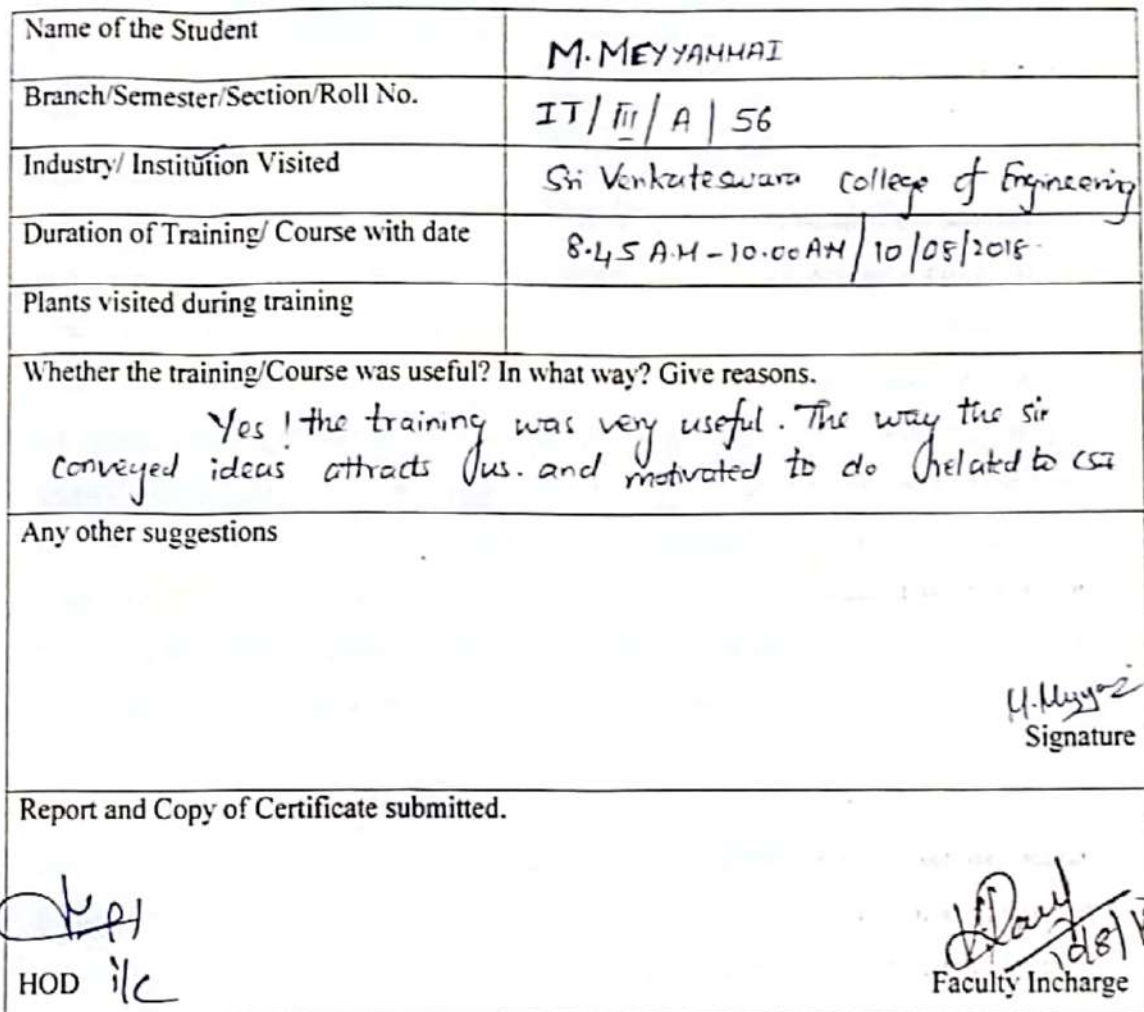 Name of the Student
M. MEYYAMMAI
Branch/Semester/Section/Roll No.
IT/III/A/56
Industry/ Institution Visited
Sri Venkateswara college of Engineering
Duration of Training/ Course with date
8.45 A.M - 10.00 AM/10/08/2018
Plants visited during training
Whether the training/Course was useful? In what way? Give reasons.
Yes! the training was very useful. The way the sir
conveyed ideas attracts us. and motivated to do related to CSI
Any other suggestions
Signature
Report and Copy of Certificate submitted.
HOD i/c
Faculty Incharge